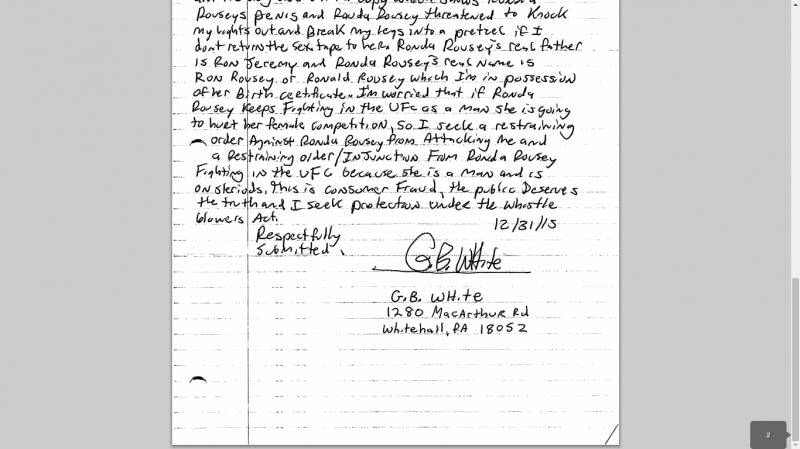 Rouseys Penis and Ronda Rousey threatened to Knock
my lights out and Break my legs into a pretzel if I
dont return the sex tape to her. Ronda Rousey's real father
is Ron Jeremy and Ronda Rousey's real name is
Ron Rousey or Ronald Rousey which I'm in possession
of her Birth certificate. I'm worried that if Ronda
Rousey Keeps Fighting in the UFC as a man she is going
to hurt her female competition, So I seek a restraining
order Against Ronda Rousey from Attacking me and
a Restraining order/INJunction From Ronda Rousey
Fighting in the UFC because she is a man and is
on steriods, This is consumer Fraud, the public Deserves
the truth and I seek protection under the whistle
blowers Act.
12/31/15
Respectfully
Submitted,
G.B. White
G.B. WHite
1280 MacArthur Rd
Whitehall, PA 18052
2